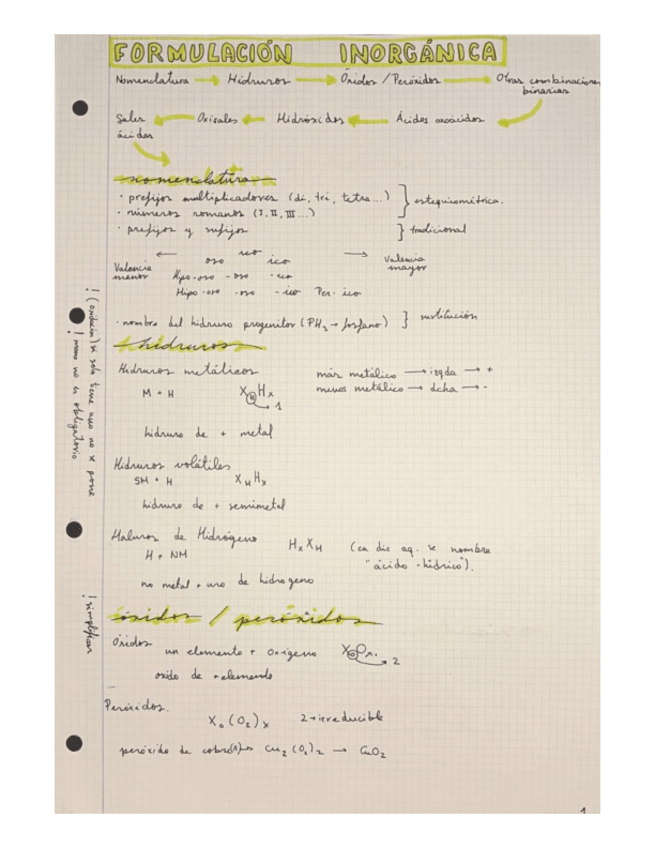 FORMULACIÓN INORGÁNICA
Nomenclatura → Hidruros → Óxidos / Peróxidos → Otras combinaciones binarias
Sales ácidas ← Oxisales ← Hidróxidos ← Ácidos oxoácidos
nomenclatura
· prefijos multiplicadores (di, tri, tetra...)
· números romanos (I, II, III...)
} estequiométrica.
· prefijos y sufijos } tradicional
← ico →
Valencia menor oso ico Valencia mayor
Hipo-oso -oso -ico
Hipo-oso -oso -ico Per-ico
· nombre del hidruro progenitor (PH3 → fosfano) } sustitución
hidruros
Hidruros metálicos
más metálico → izqda → +
menos metálico → dcha → -
M + H
1
hidruro de + metal
Hidruros volátiles
SM + H XHHx
hidruro de + semimetal
Haluros de Hidrógeno HxXH (en dis aq. se nombra
H + NM "ácido -hídrico").
no metal + uro de hidrogeno
óxidos / peróxidos
Óxidos
un elemento + oxigeno
2
oxido de + elemento
Peróxidos.
(O2)x 2 → irreducible
peróxido de Cu2(O2)2 → CuO2
! (oxidación) si solo tiene uno no se pone
! mono no es obligatorio
! simplificar
1